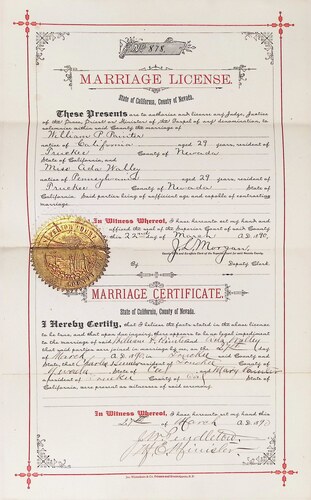 No. 878,
MARRIAGE LICENSE.
State of California, County of Nevada.
These Presents are to authorize and license any Judge, Justice
of the Peace, Priest or Minister of the Gospel of any denomination, to
solemnize within said County the marriage of
William P. Painter
native of California aged 29 years, resident of
Truckee County of Nevada
State of California, and
Miss Ada Walley
native of Pennsylvania aged 29 years, resident of
Truckee County of Nevada State of
California. Said parties being of sufficient age and capable of contracting
marriage.
In Witness Whereof, I have hereunto set my hand and
affixed the seal of the Superior Court of said County
this 22nd day of March A.D. 190
J. L. Morgan,
By Deputy Clerk.
MARRIAGE CERTIFICATE.
State of California, County of Nevada.
I Hereby Certify, that I believe the facts stated in the above license
to be true, and that upon due inquiry, there appears to be no legal impediment
to the marriage of said William P. Ada Walley
that said parties were joined in marriage by me, on the day of
March A.D. 190 in Truckee said County and
State; that Charles a resident of Truckee County
of Nevada State of Cal and Mary
a resident of Truckee County of State of
California, were present as witnesses of said ceremony.
In Witness Whereof, I have hereunto set my hand this
day of March A.D. 190
J. W. Pendleton
M. E. Minister